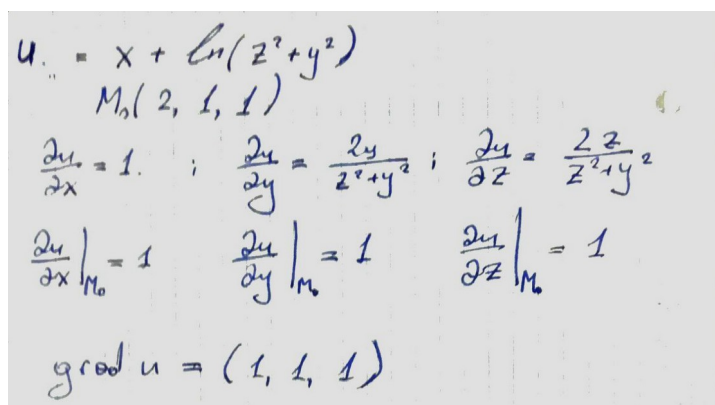 u = x + ln(z²+y²)
M₀(2, 1, 1)
∂u/∂x = 1. ; ∂u/∂y = 2y/(z²+y²) ; ∂u/∂z = 2z/(z²+y²)
∂u/∂x|M₀ = 1 ∂u/∂y|M₀ = 1 ∂u/∂z|M₀ = 1
grad u = (1, 1, 1)